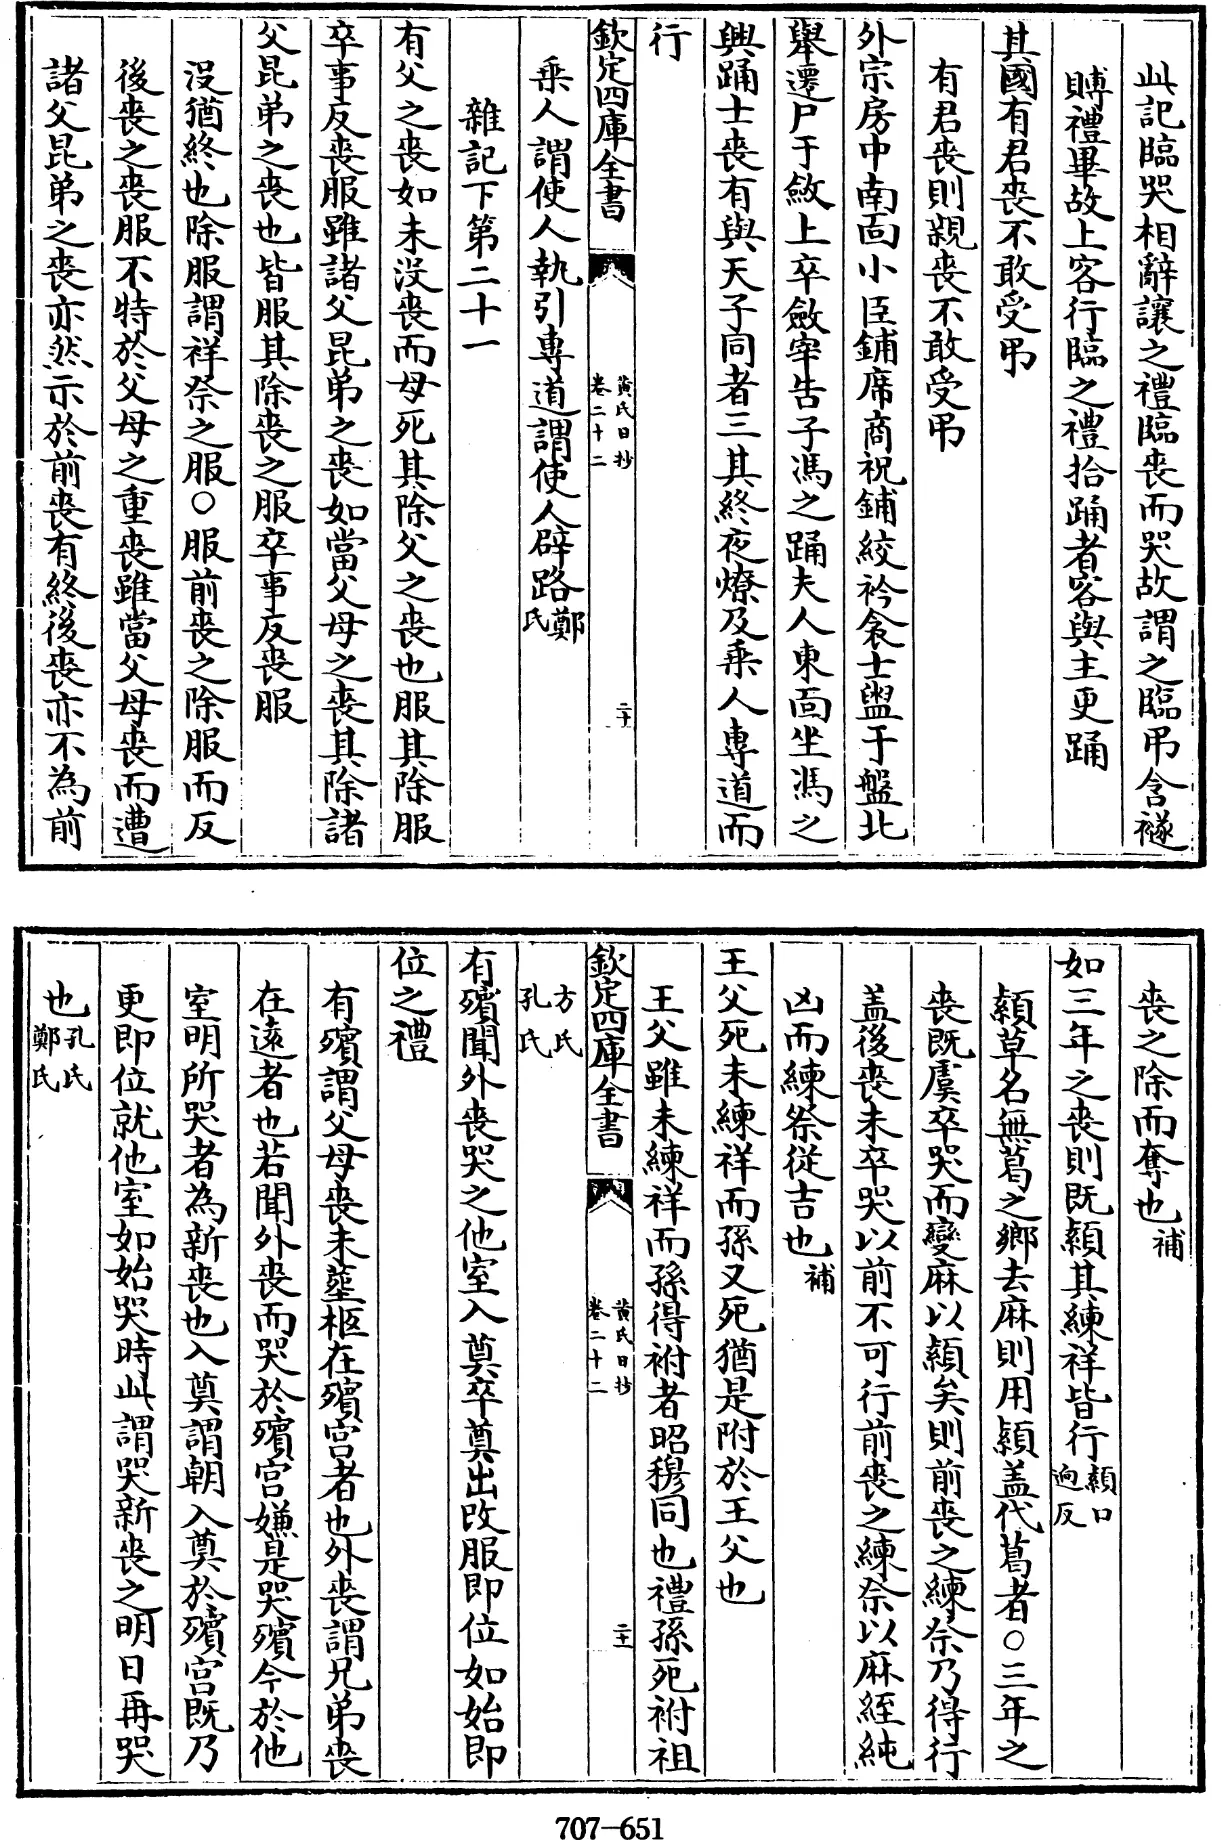 此記臨哭相辭讓之禮臨喪而哭故謂之臨弔含襚
賻禮畢故上客行臨之禮拾踊者客與主更踊
其國有君喪不敢受弔
有君喪則親喪不敢受弔
外宗房中南面小臣鋪席商祝鋪絞衿衾士盥于盤北
舉遷尸于斂上卒斂宰告子馮之踊夫人東面坐馮之
興踊士喪有與天子同者三其終夜燎及乗人専道而
行
欽定四庫全書
黃氏日抄
卷二十二
二十
乗人謂使人執引専道謂使人辟路鄭氏
雜記下第二十一
有父之喪如未沒喪而母死其除父之喪也服其除服
卒事反喪服雖諸父昆弟之喪如當父母之喪其除諸
父昆弟之喪也皆服其除喪之服卒事反喪服
沒猶終也除服謂祥祭之服○服前喪之除服而反
後喪之喪服不特於父母之重喪雖當父母喪而遭
諸父昆弟之喪亦然示於前喪有終後喪亦不為前
喪之除而奪也補
如三年之喪則既顈其練祥皆行顈口迥反
顈草名無葛之鄉去麻則用顈蓋代葛者○三年之
喪既虞卒哭而變麻以顈矣則前喪之練祭乃得行
盖後喪未卒哭以前不可行前喪之練祭以麻絰純
凶而練祭從吉也補
王父死未練祥而孫又死猶是附於王父也
王父雖未練祥而孫得祔者昭穆同也禮孫死祔祖
欽定四庫全書
黃氏日抄
卷二十二
二十一
方氏孔氏
有殯聞外喪哭之他室入奠卒奠出改服即位如始即
位之禮
有殯謂父母喪未葬柩在殯宮者也外喪謂兄弟喪
在遠者也若聞外喪而哭於殯宮嫌是哭殯今於他
室明所哭者為新喪也入奠謂朝入奠於殯宮既乃
更即位就他室如始哭時此謂哭新喪之明日再哭
也孔氏鄭氏
707-651